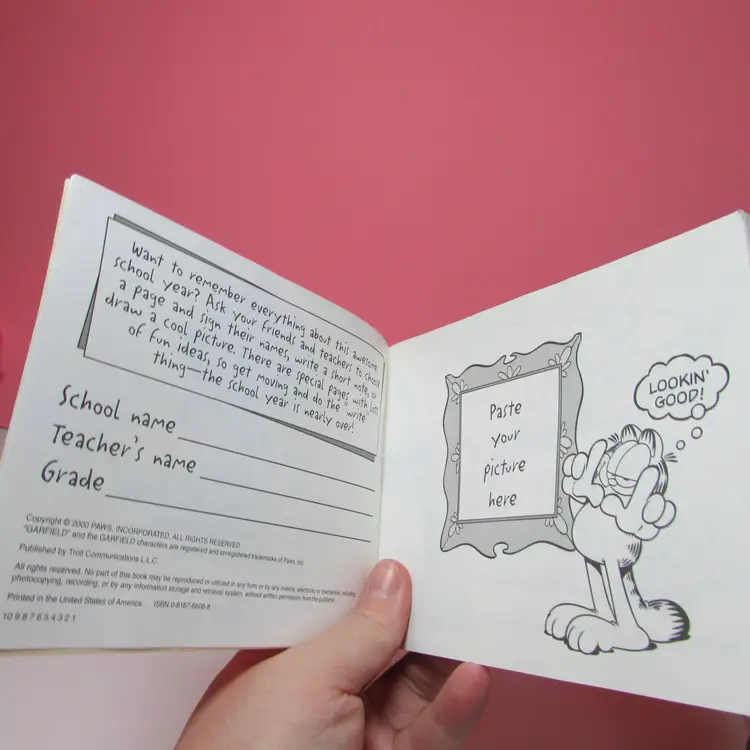 Want to remember everything about this awesome
school year? Ask your friends and teachers to choose
a page and sign their names, write a short note, or
draw a cool picture. There are special pages with lists
of fun ideas, so get moving and do the "write"
thing—the school year is nearly over!
School name
Teacher's name
Grade
Copyright © 2000 PAWS, INCORPORATED. ALL RIGHTS RESERVED
"GARFIELD" and the GARFIELD characters are registered and unregistered trademarks of Paws, Inc.
Published by Troll Communications L.L.C.
All rights reserved. No part of this book may be reproduced or utilized in any form or by any means, electronic or mechanical, including
photocopying, recording, or by any information storage and retrieval system, without written permission from the publisher.
Printed in the United States of America. ISBN 0-8167-6608-8
10 9 8 7 6 5 4 3 2 1
Paste
your
picture
here
LOOKIN'
GOOD!